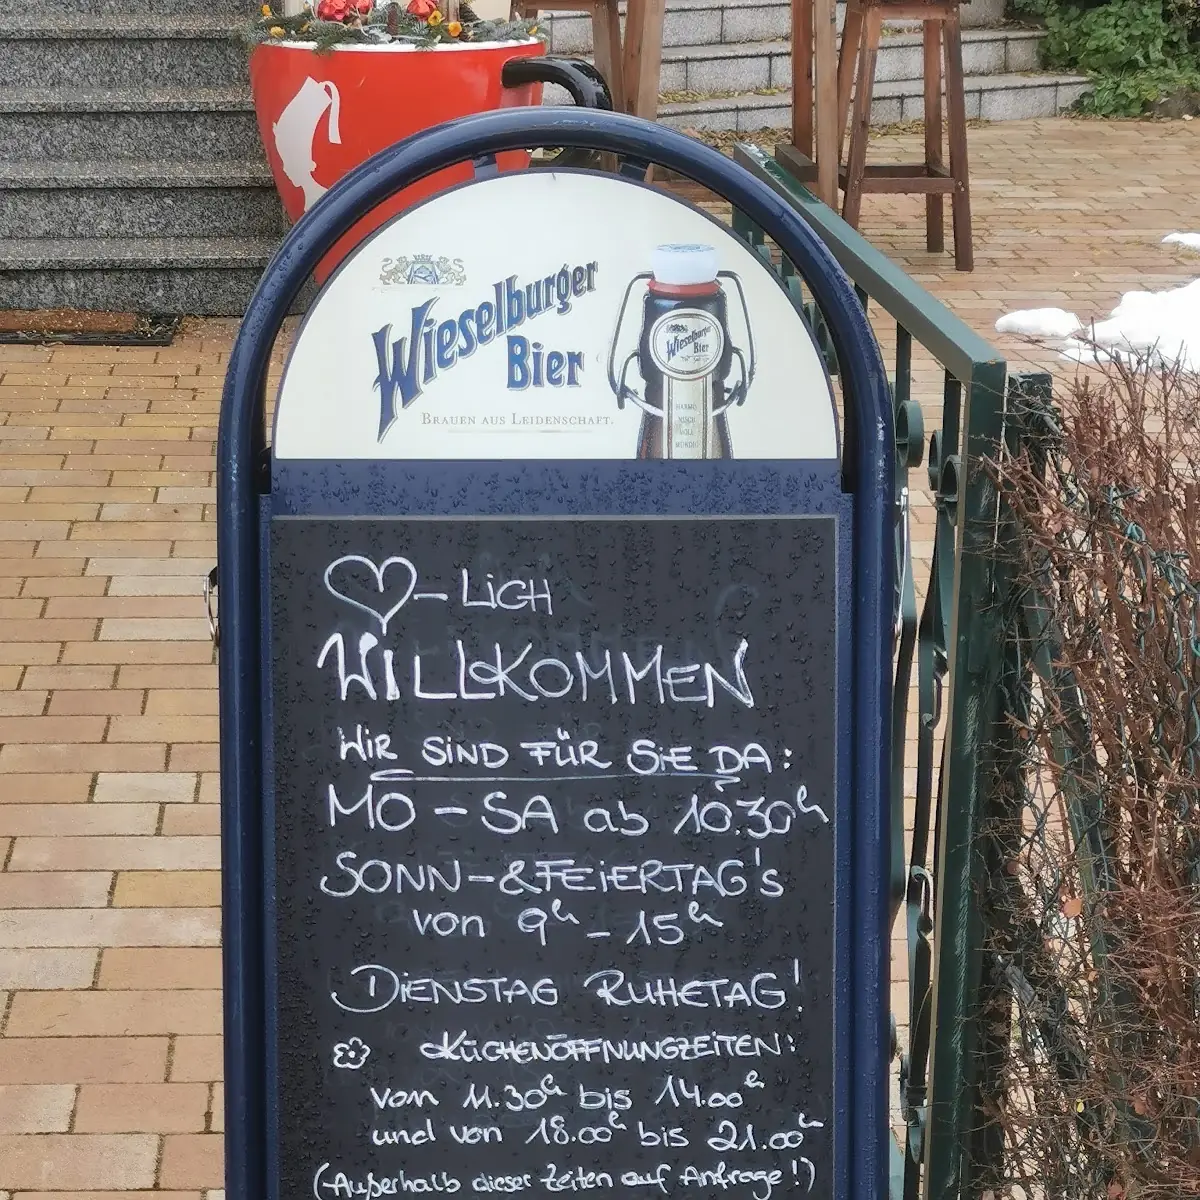 Wieselburger
Bier
BRAUEN AUS LEIDENSCHAFT.
Wieselburger
Bier
HARMO
NISCH
VOLL
MUNDIG
♡-LiCH
WiLLKOMMEN
WiR SiND FÜR SiE DA:
MO - SA ab 10.30h
SONN-&FEiERTAG's
von 9h - 15h
DiENSTAG RUHETAG!
KÜCHENÖFFNUNGZEiTEN:
von 11.30h bis 14.00h
und von 18.00h bis 21.00h
(Außerhalb dieser Zeiten auf Anfrage!)